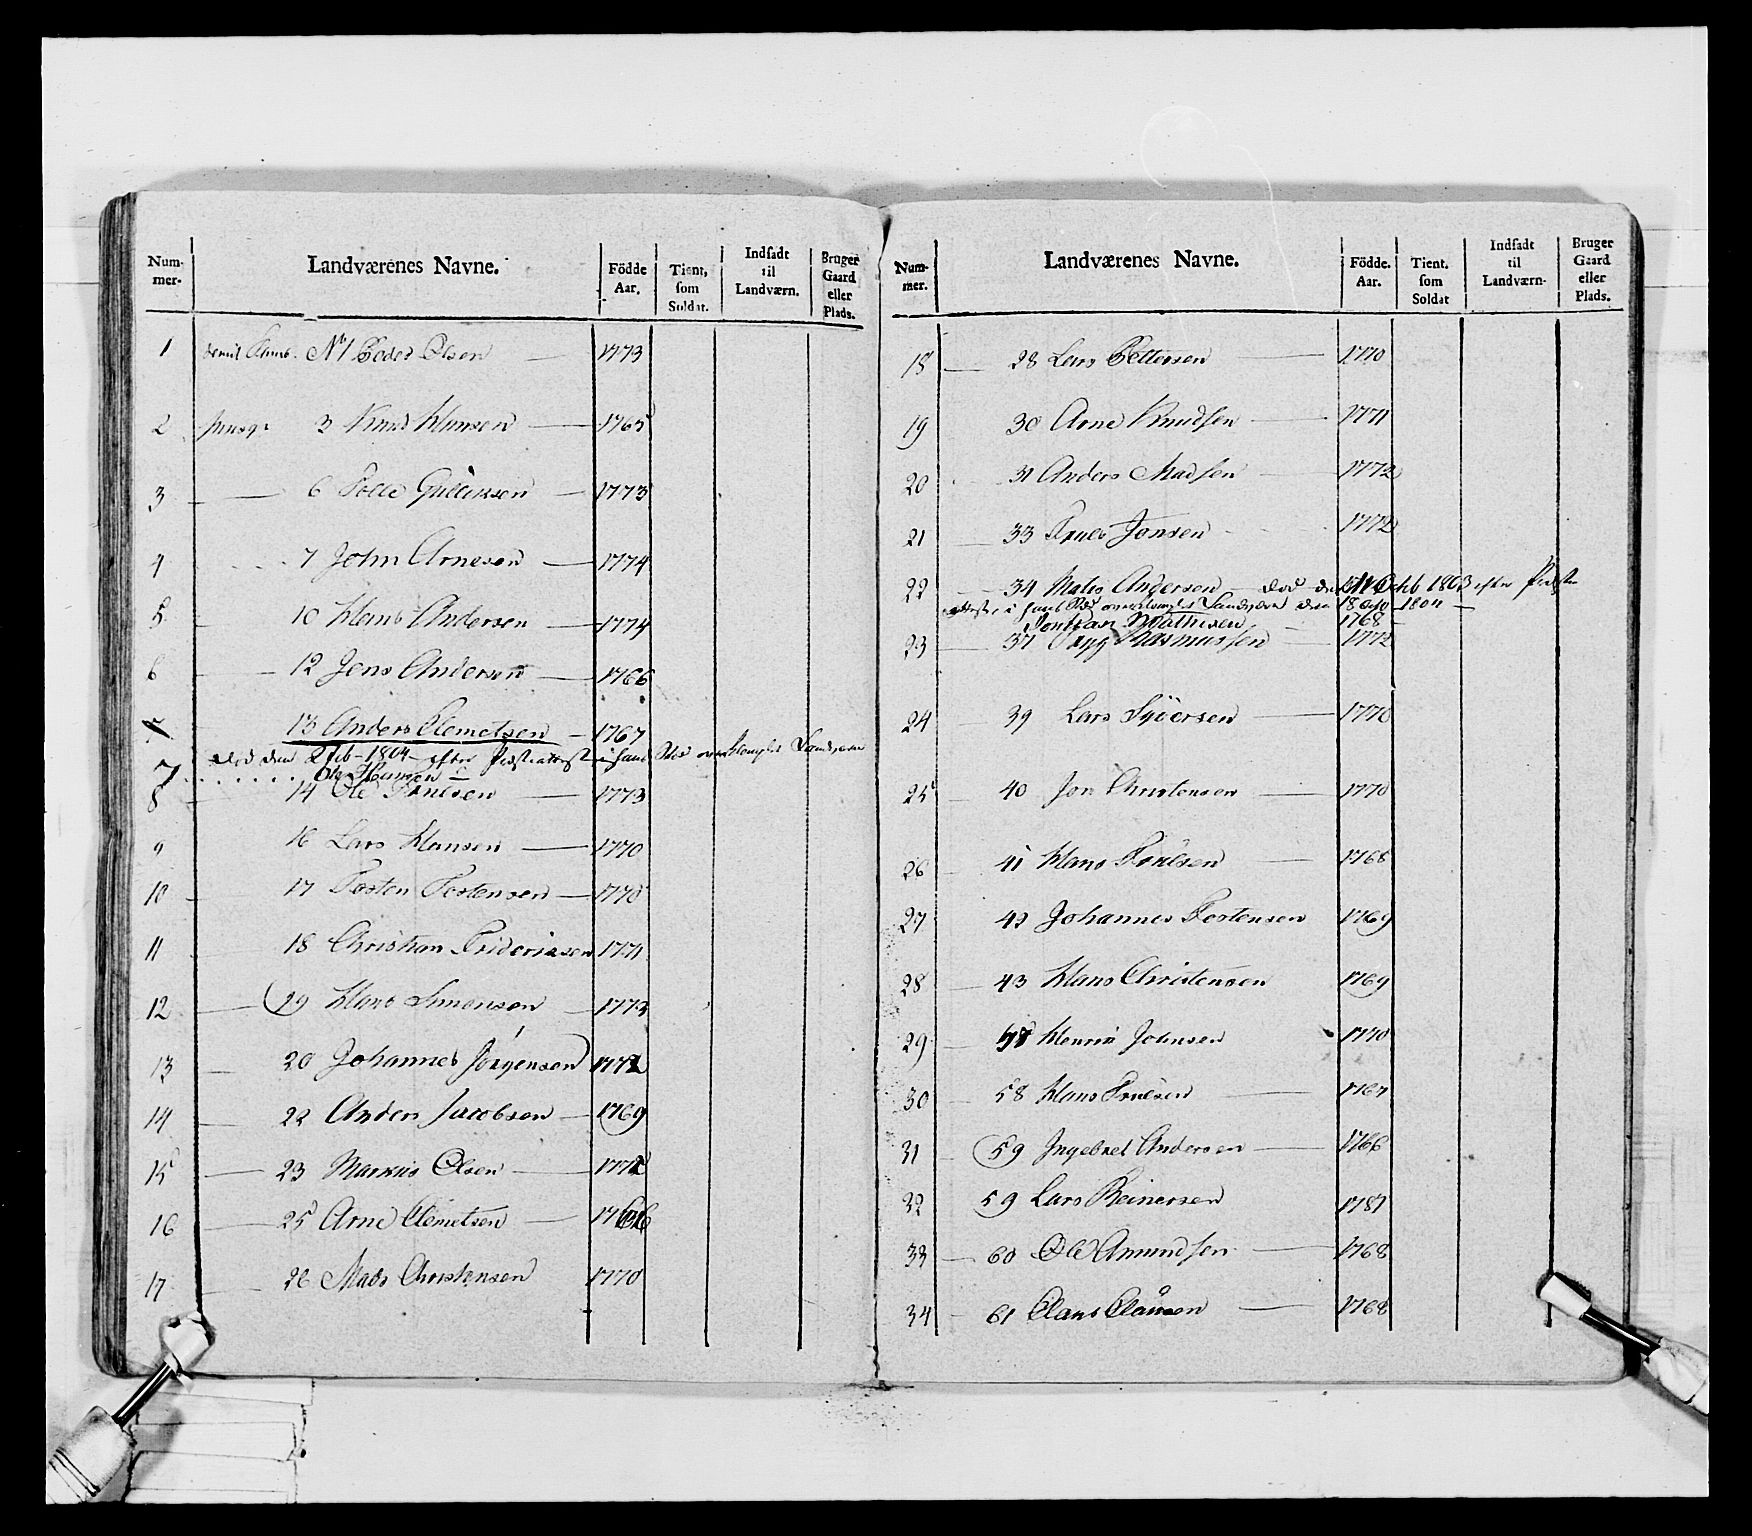 Num-
mer.
Landværenes Navne.
Födde
Aar.
Tient,
som
Soldat.
Indsadt
til
Landværn.
Bruger
Gaard
eller
Plads.
1 No 1 Peder Olsen — 1773
2 3 Knud Hansen — 1765
3 — 6 Gulliksen — 1773
4 7 John Arnesen — 1774
5 10 Hans Andersen — 1774
6 — 12 Jens Andersen — 1766
7 13 Anders Clemetsen — 1767
Død den 2 Feb 1804 efter Præsteattest i hans Sted
7 Ole Hansen
8 14 Ole Poulsen — 1773
9 16 Lars Hansen — 1770
10 17 Tosten Tostensen — 1770
11 18 Christian Friderichsen 1771
12 — 19 Hans Simensen — 1773
13 20 Johannes Jörgensen 1772
14 — 22 Anders Jacobsen — 1769
15 — 23 Markus Olsen — 1772
16 — 25 Arne Clemetsen — 1766
17 — 26 Mads Christensen 1770
Num-
mer.
Landværenes Navne.
Födde.
Aar.
Tient.
som
Soldat
Indsadt
til
Landværn-
Bruger
Gaard
eller
Plads.
18 — 28 Lars Pettersen — 1770
19 30 Arne Knudsen — 1771
20 31 Anders Madsen — 1772
21 — 33 Poul Jonsen 1772
22 — 34 Andersen — Død den Octb 1803 efter Præste
attest, i hans Sted Landværn den 18 1804 —
Mathisen — 1768 -
23 — 37 Rasmussen — 1772
24 — 39 Lars Syversen — 1770
25 — 40 Jon Christensen — 1770
26 41 Hans Poulsen — 1768
27 42 Johannes Tostensen 1769
28 — 43 Hans Christensen 1769
29 — Henrik Johnsen 1770
30 — 58 Hans Poulsen — 1767
31 59 Ingebret Andersen — 1766
32 59 Lars Reinersen 1781
33 — 60 Ole Amundsen — 1768
34 — 61 Claus Clausen — 1768